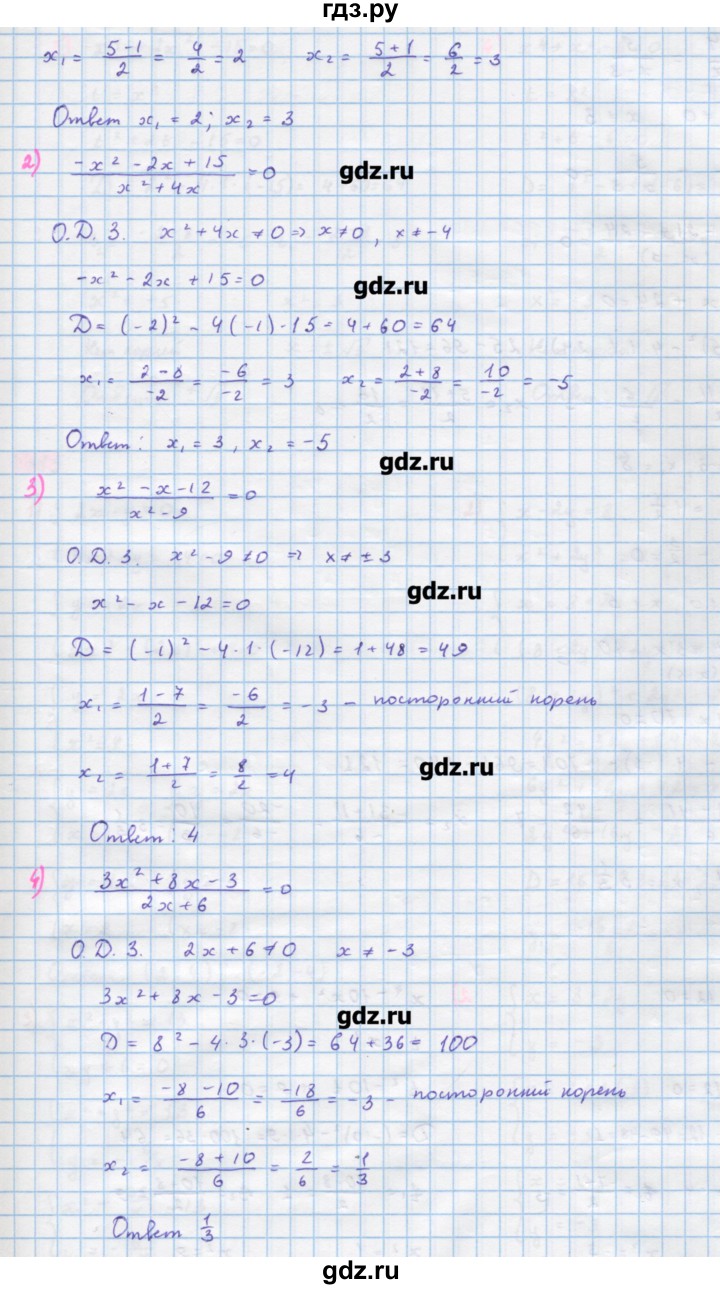 гдз.ру
x₁ = (5-1)/2 = 4/2 = 2     x₂ = (5+1)/2 = 6/2 = 3
Ответ x₁ = 2; x₂ = 3
2) (-x² - 2x + 15)/(x² + 4x) = 0
gdz.ru
О.Д.З. x² + 4x ≠ 0 => x ≠ 0, x ≠ -4
-x² - 2x + 15 = 0
gdz.ru
D = (-2)² - 4(-1)·15 = 4 + 60 = 64
x₁ = (2-8)/-2 = -6/-2 = 3     x₂ = (2+8)/-2 = 10/-2 = -5
Ответ: x₁ = 3, x₂ = -5
gdz.ru
3) (x² - x - 12)/(x² - 9) = 0
О.Д.З. x² - 9 ≠ 0 => x ≠ ±3
gdz.ru
x² - x - 12 = 0
D = (-1)² - 4·1·(-12) = 1 + 48 = 49
x₁ = (1-7)/2 = -6/2 = -3 - посторонний корень
x₂ = (1+7)/2 = 8/2 = 4
gdz.ru
Ответ: 4
4) (3x² + 8x - 3)/(2x + 6) = 0
О.Д.З. 2x + 6 ≠ 0     x ≠ -3
3x² + 8x - 3 = 0
gdz.ru
D = 8² - 4·3·(-3) = 64 + 36 = 100
x₁ = (-8-10)/6 = -18/6 = -3 - посторонний корень
x₂ = (-8+10)/6 = 2/6 = 1/3
Ответ 1/3
gdz.ru